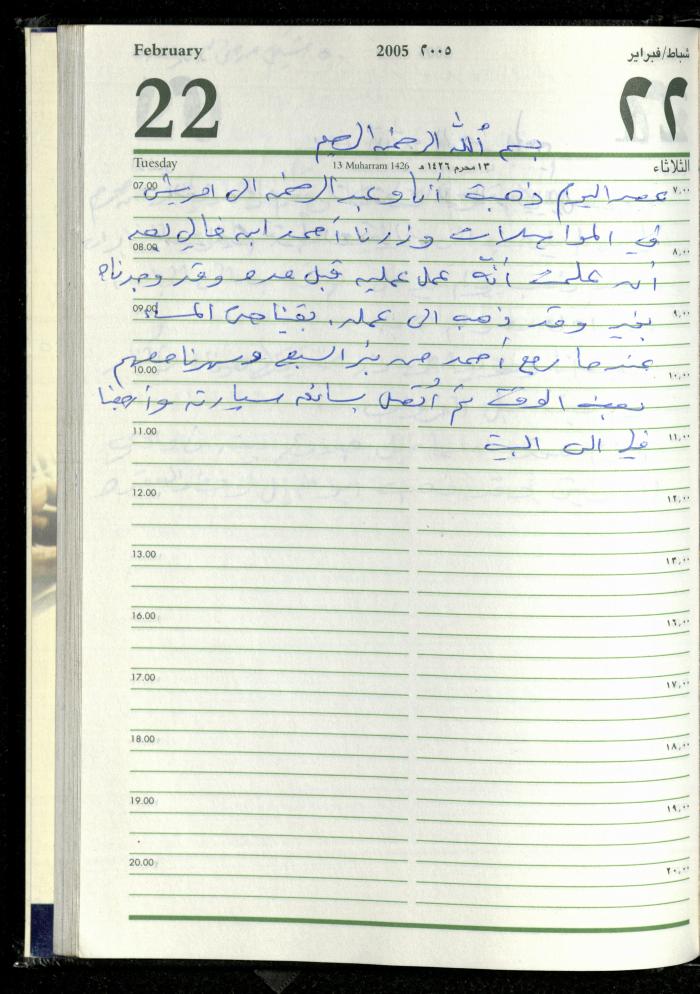 February 2005 ٢٠٠٥ شباط/فبراير
22 ٢٢
بسم الله الرحمن الرحيم
Tuesday 13 Muharram 1426 ١٣ محرم ١٤٢٦ هـ الثلاثاء
07.00 ٧,٠٠
عصر اليوم ذهبت أنا وعبد الرحمن الى امريش
في المواصلات وزرنا أحمد ابن غالي بعد
08.00 ٨,٠٠
أن علمت أنّه عمل عمليه قبل مده وقد وجدناه
09.00 ٩,٠٠
بخير وقد ذهب الى عمله. بقينا حتى المساء
عندما رجع أحمد من بئر السبع وسهرنا معهم
10.00 ١٠,٠٠
بعض الوقت ثم أتصل بسائق سيارته وأرجعنا
11.00 ١١,٠٠
الى البيت
12.00 ١٢,٠٠
13.00 ١٣,٠٠
16.00 ١٦,٠٠
17.00 ١٧,٠٠
18.00 ١٨,٠٠
19.00 ١٩,٠٠
20.00 ٢٠,٠٠